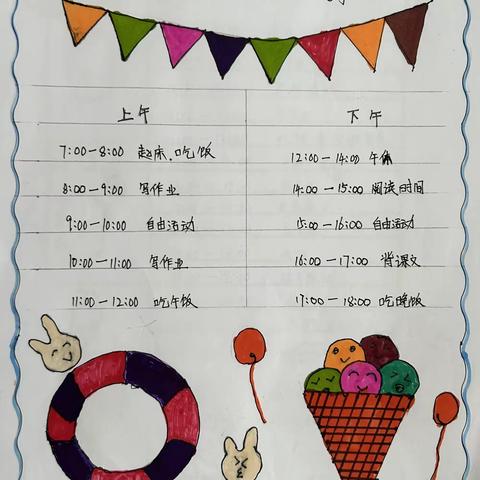 上午
7:00—8:00 起床、吃饭
8:00—9:00 写作业
9:00—10:00 自由活动
10:00—11:00 写作业
11:00—12:00 吃午饭
下午
12:00—14:00 午休
14:00—15:00 阅读时间
15:00—16:00 自由活动
16:00—17:00 背课文
17:00—18:00 吃晚饭